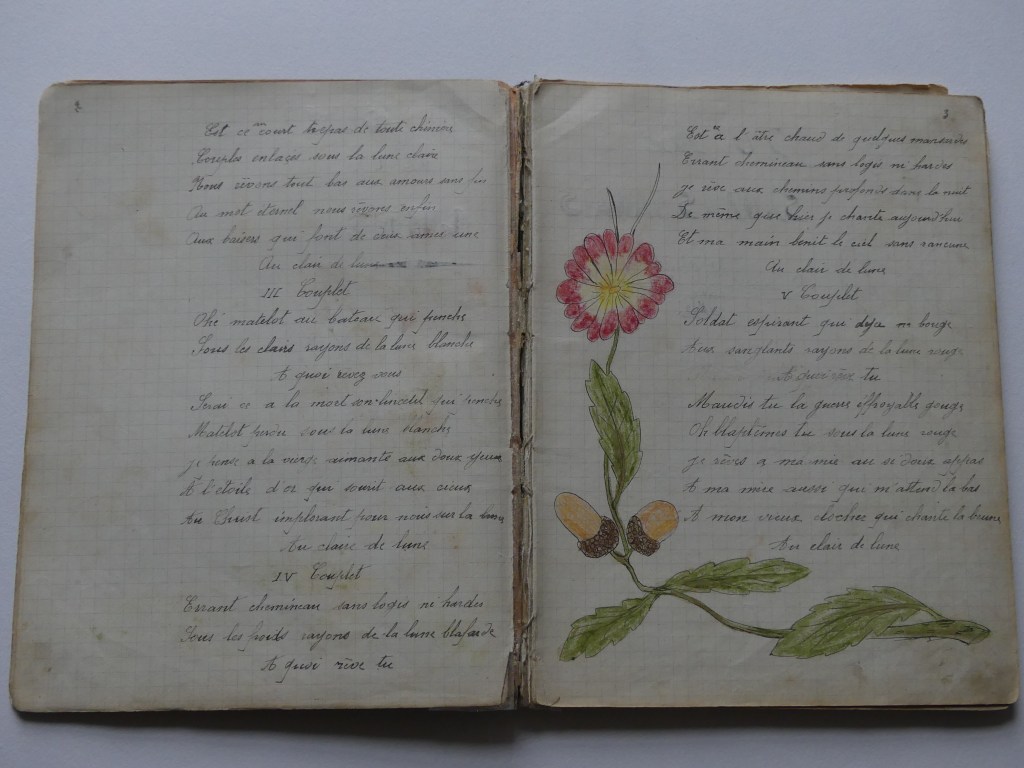 2
Est ce court trepas de toute chimère
Couples enlaçés sous la lune claire
Nous rêvons tout bas aux amours sans fin
Au mot eternel nous rêvons enfin
Aux baisers qui font de deux ames une
Au clair de lune
III Couplet
Ohé matelot au bateau qui penche
Sous les clairs rayons de la lune blanche
A quoi rêvez vous
Serai ce a la mort son linceul qui penche
Matelot perdu sous la lune blanche
je pense a la vierge aimante aux doux yeux
A l'étoile d'or qui sourit aux cieux
Au Christ implorant pour nous sur la
Au claire de lune
IV Couplet
Errant chemineau sans logis ni hardes
Sous les froids rayons de la lune blafarde
A quoi rêve tu
3
Est ce a l'âtre chaud de quelques mansardes
Errant chemineau sans logis ni hardes
je rêve aux chemins profonds dans la nuit
De même que hier je chante aujourd'hui
Et ma main benit le ciel sans rancune
Au clair de lune
V Couplet
Soldat expirant qui deja ne bouge
Aux sanglants rayons de la lune rouge
A quoi rêve tu
Maudis tu la guerre effroyable gouge
Oh blaptèmes tu sous la lune rouge
je rêves a ma mie au si doux appas
A ma mère aussi qui m'attend la bas
A mon vieux clocher qui chante la brune
Au clair de lune